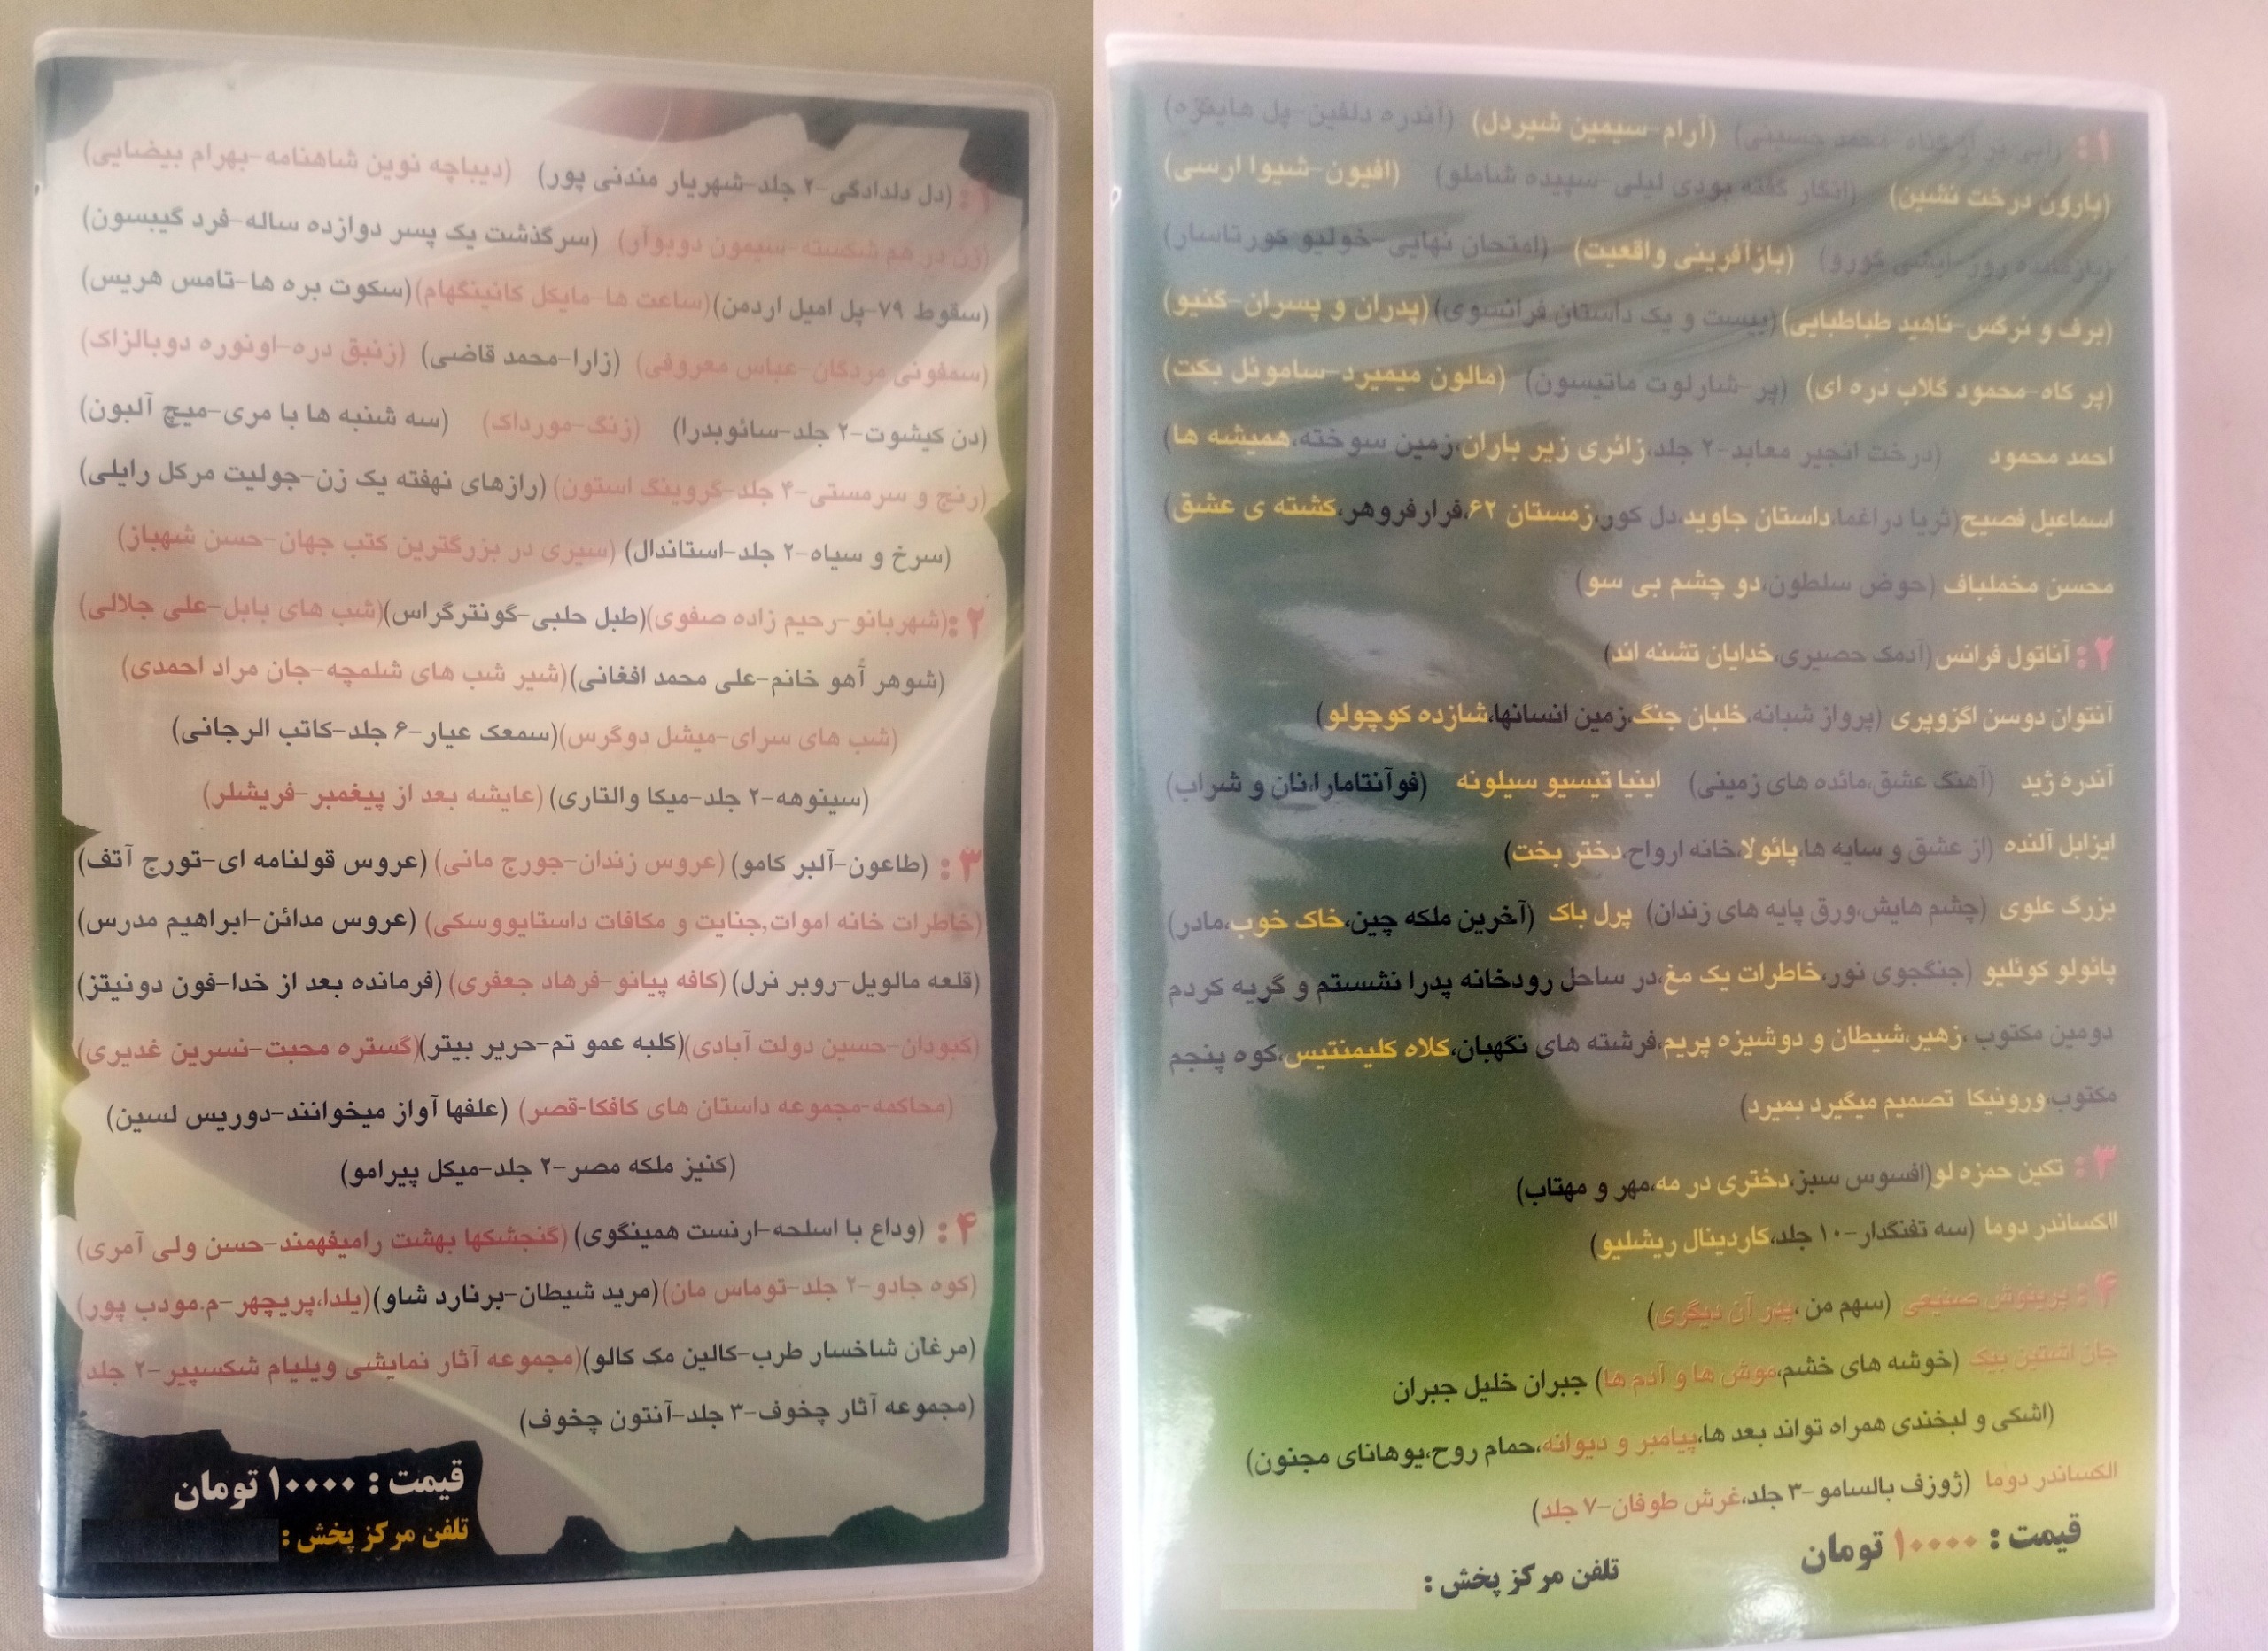 ۱: (دل دلدادگی-۲ جلد-شهریار مندنی پور) (دیباچه نوین شاهنامه-بهرام بیضایی)
(زن در هم شکسته-سیمون دوبوآر) (سرگذشت یک پسر دوازده ساله-فرد گیبسون)
(سقوط ۷۹-پل امیل اردمن)(ساعت ها-مایکل کانینگهام)(سکوت بره ها-تامس هریس)
(سمفونی مردگان-عباس معروفی) (زارا-محمد قاضی) (زنبق دره-اونوره دوبالزاک)
(دن کیشوت-۲ جلد-سائوبدرا) (زنگ-مورداک) (سه شنبه ها با مری-میچ آلبون)
(رنج و سرمستی-۴ جلد-گروینگ استون)(رازهای نهفته یک زن-جولیت مرکل رایلی)
(سرخ و سیاه-۲ جلد-استاندال) (سیری در بزرگترین کتب جهان-حسن شهباز)
۲:(شهربانو-رحیم زاده صفوی)(طبل حلبی-گونترگراس)(شب های بابل-علی جلالی)
(شوهر آهو خانم-علی محمد افغانی)(شیر شب های شلمچه-جان مراد احمدی)
(شب های سرای-میشل دوگرس)(سمعک عیار-۶ جلد-کاتب الرجانی)
(سینوهه-۲ جلد-میکا والتاری) (عایشه بعد از پیغمبر-فریشلر)
۳: (طاعون-آلبر کامو) (عروس زندان-جورج مانی) (عروس قولنامه ای-تورج آتف)
(خاطرات خانه اموات,جنایت و مکافات داستایووسکی) (عروس مدائن-ابراهیم مدرس)
(قلعه مالویل-روبر نرل) (کافه پیانو-فرهاد جعفری) (فرمانده بعد از خدا-فون دونیتز)
(کبودان-حسین دولت آبادی)(کلبه عمو تم-حریر بیتر)(گستره محبت-نسرین غدیری)
(محاکمه-مجموعه داستان های کافکا-قصر) (علفها آواز میخوانند-دوریس لسین)
(کنیز ملکه مصر-۲ جلد-میکل پیرامو)
۴: (وداع با اسلحه-ارنست همینگوی) (گنجشکها بهشت رامیفهمند-حسن ولی آمری)
(کوه جادو-۲ جلد-توماس مان)(مرید شیطان-برنارد شاو)(یلدا،پریچهر-م.مودب پور)
(مرغان شاخسار طرب-کالین مک کالو)(مجموعه آثار نمایشی ویلیام شکسپیر-۲ جلد)
(مجموعه آثار چخوف-۳ جلد-آنتون چخوف)
قیمت : ۱۰۰۰۰ تومان
تلفن مرکز پخش :
۱: محمد حسینی) (آرام-سیمین شیردل) (آندره دلفین-پل هاینزه)
(بارون درخت نشین) (انگار گفته بودی لیلی-سپیده شاملو) (افیون-شیوا ارسی)
(بازمانده روز-ایشی گورو) (بازآفرینی واقعیت) (امتحان نهایی-خولیو کورتاسار)
(برف و نرگس-ناهید طباطبایی)(بیست و یک داستان فرانسوی)(پدران و پسران-گنیو)
(پر کاه-محمود گلاب دره ای) (پر-شارلوت ماتیسون) (مالون میمیرد-ساموئل بکت)
احمد محمود (درخت انجیر معابد-۲ جلد،زائری زیر باران،زمین سوخته،همیشه ها)
اسماعیل فصیح(ثریا دراغما،داستان جاوید،دل کور،زمستان ۶۲،فرارفروهر،کشته ی عشق)
محسن مخملباف (حوض سلطون،دو چشم بی سو)
۲: آناتول فرانس(آدمک حصیری،خدایان تشنه اند)
آنتوان دوسن اگزوپری (پرواز شبانه،خلبان جنگ،زمین انسانها،شازده کوچولو)
آندره ژید (آهنگ عشق،مائده های زمینی) اینیا تیسیو سیلونه (فوآنتامارا،نان و شراب)
ایزابل آلنده (از عشق و سایه ها،پائولا،خانه ارواح،دختر بخت)
بزرگ علوی (چشم هایش،ورق پایه های زندان) پرل باک (آخرین ملکه چین،خاک خوب،مادر)
پائولو کوئلیو (جنگجوی نور،خاطرات یک مغ،در ساحل رودخانه پدرا نشستم و گریه کردم
دومین مکتوب ،زهیر،شیطان و دوشیزه پریم،فرشته های نگهبان،کلاه کلیمنتیس،کوه پنجم
مکتوب،ورونیکا تصمیم میگیرد بمیرد)
۳: تکین حمزه لو(افسوس سبز،دختری در مه،مهر و مهتاب)
الکساندر دوما (سه تفنگدار-۱۰ جلد،کاردینال ریشلیو)
۴: پرینوش صنیعی (سهم من ،پدر آن دیگری)
جان اشتین بیک (خوشه های خشم،موش ها و آدم ها) جبران خلیل جبران
(اشکی و لبخندی همراه تواند بعد ها،پیامبر و دیوانه،حمام روح،یوهانای مجنون)
الکساندر دوما (ژوزف بالسامو-۳ جلد،غرش طوفان-۷ جلد)
قیمت : ۱۰۰۰۰ تومان
تلفن مرکز پخش :